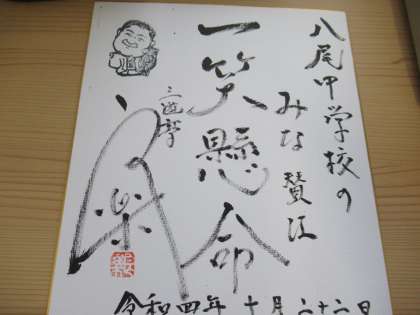 八尾中学校の
みな賛江
一笑懸命
三遊亭
令和四年十月二十六日